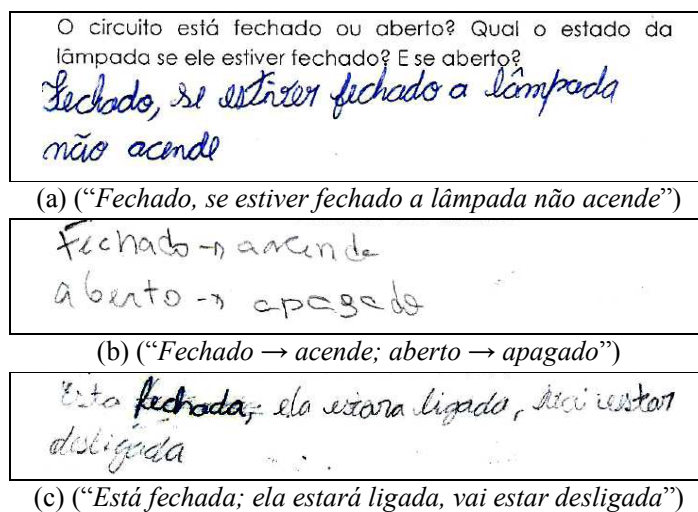 O circuito está fechado ou aberto? Qual o estado da
lâmpada se ele estiver fechado? E se aberto?
Fechado, se estiver fechado a lâmpada
não acende
(a) (“Fechado, se estiver fechado a lâmpada não acende”)
Fechado → acende
aberto → apagado
(b) (“Fechado → acende; aberto → apagado”)
Esta fechada, ela estara ligada, vai estar
desligada
(c) (“Está fechada; ela estará ligada, vai estar desligada”)